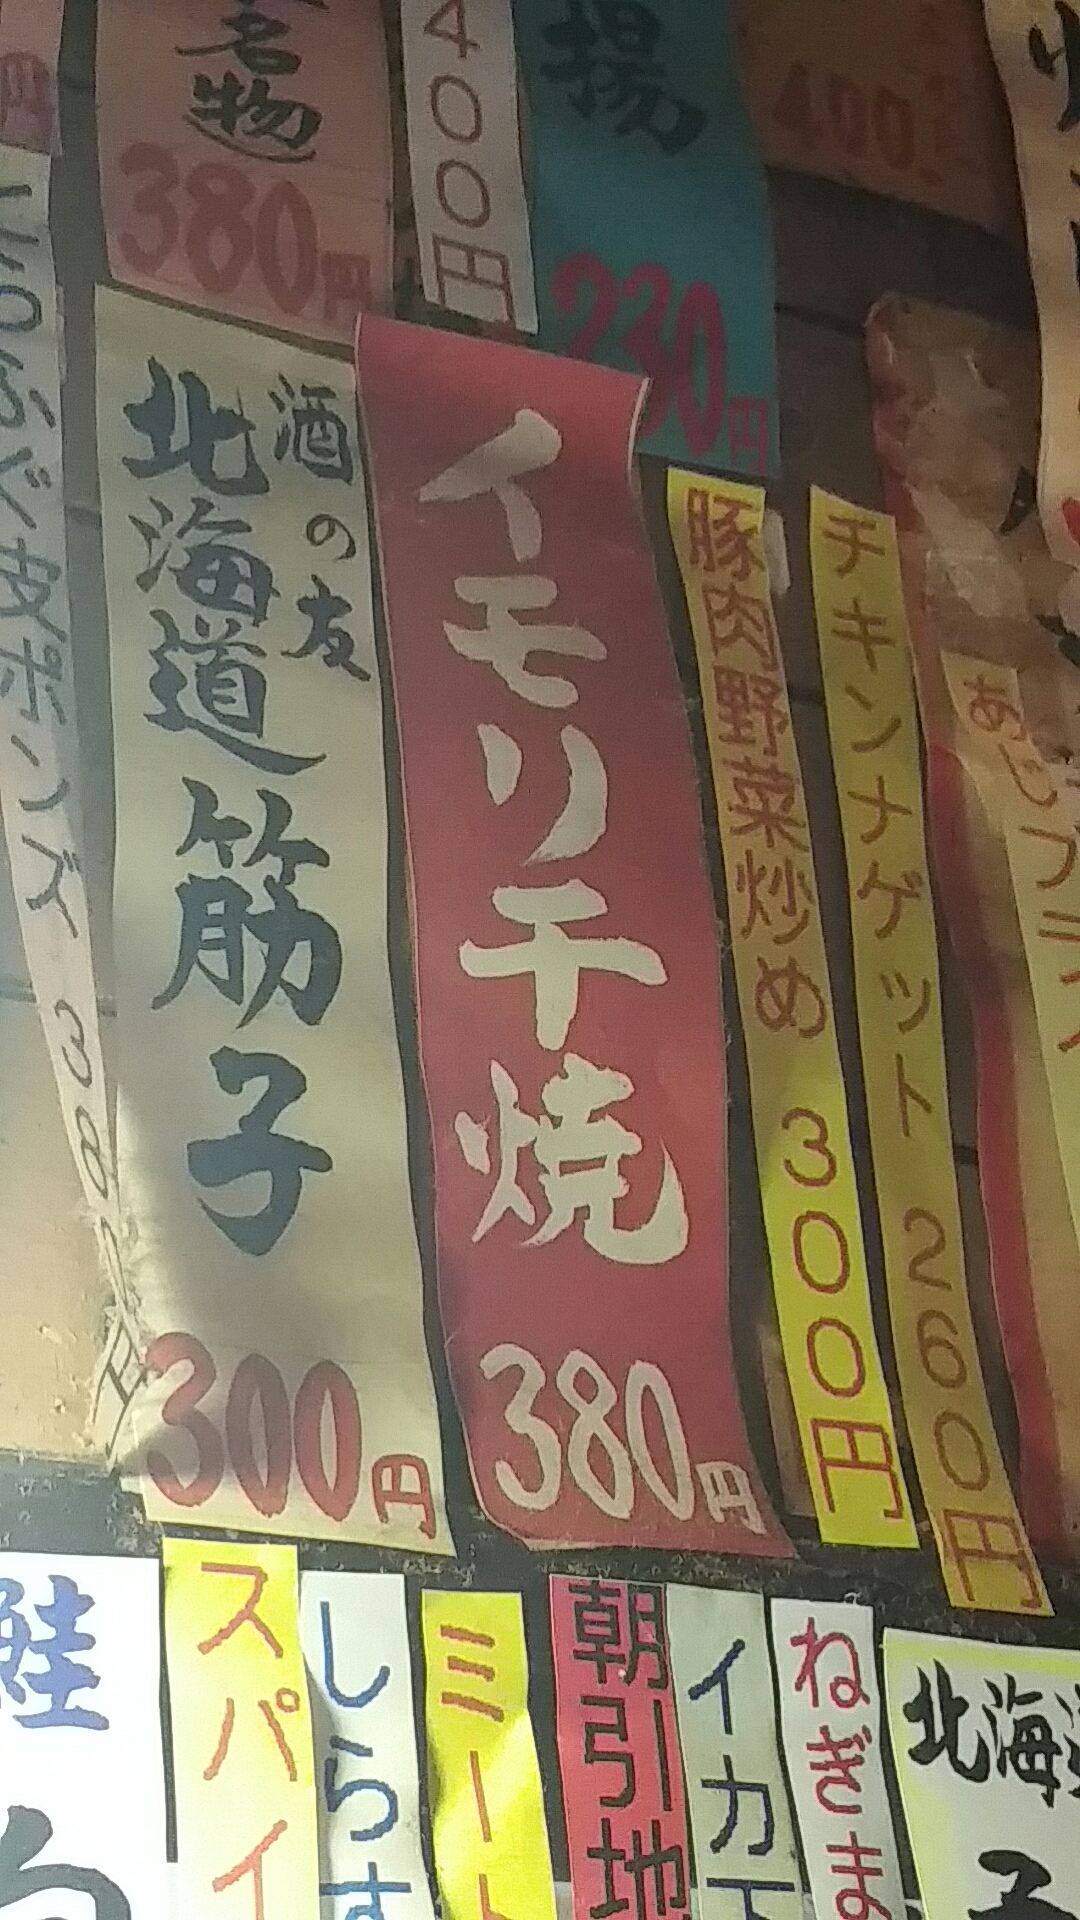 名物
380円
400円
揚
230円
400
とらふぐ皮ポンズ 380円
酒の友
北海道筋子
300円
イモリ干焼
380円
豚肉野菜炒め 300円
チキンナゲット 260円
あじフラ
鮭
スパイ
しらす
ミー
朝引地
イカ下
ねぎま
北海道
子